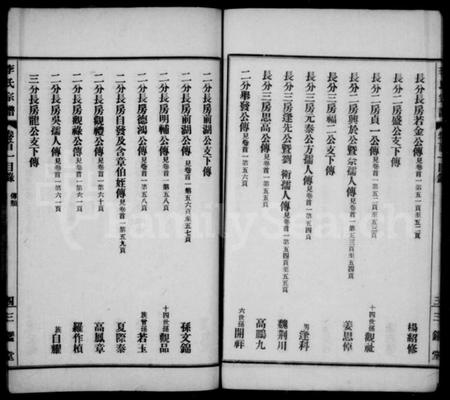 長分長房若金公傳見卷首一第五一頁至五二頁 楊紹修
長分二房盛公支下傳見卷首一第五二頁
長分二房貞一公傳見卷首一第五二頁 十四世孫觀祉
長分二房興於公暨宗孺人傳見卷首一第五三頁至五四頁 姜思倬
長分三房福二公支下傳
長分三房元泰公方孺人傳見卷首一第五四頁 男逢科
長分三房逢先公暨劉衛孺人傳見卷首一第五四頁至五五頁 魏荊川
長分三房思高公傳見卷首一第五五頁 高鵬九
二分舉發公傳見卷首一第五六頁 六世孫開祥
李氏宗譜 卷首一目錄 傳類 四三 鑑堂
二分長房前湖公支下傳
二分長房前湖公傳見卷首一第五六頁至五七頁 孫文錦
二分長房明輔公傳見卷首一第五八頁 十四世孫觀品
二分長房德鴻公傳見卷首一第五八頁 族曾孫若玉
二分長房自發及含章伯姪傳見卷首一第五九頁 夏際泰
二分長房觀禮公傳見卷首一第六十頁 高鳳章
二分長房觀祿公傳見卷首一第六一頁 羅作楨
二分長房吳孺人傳見卷首一第六一頁 族自耀
三分長房龍公支下傳
FamilySearch